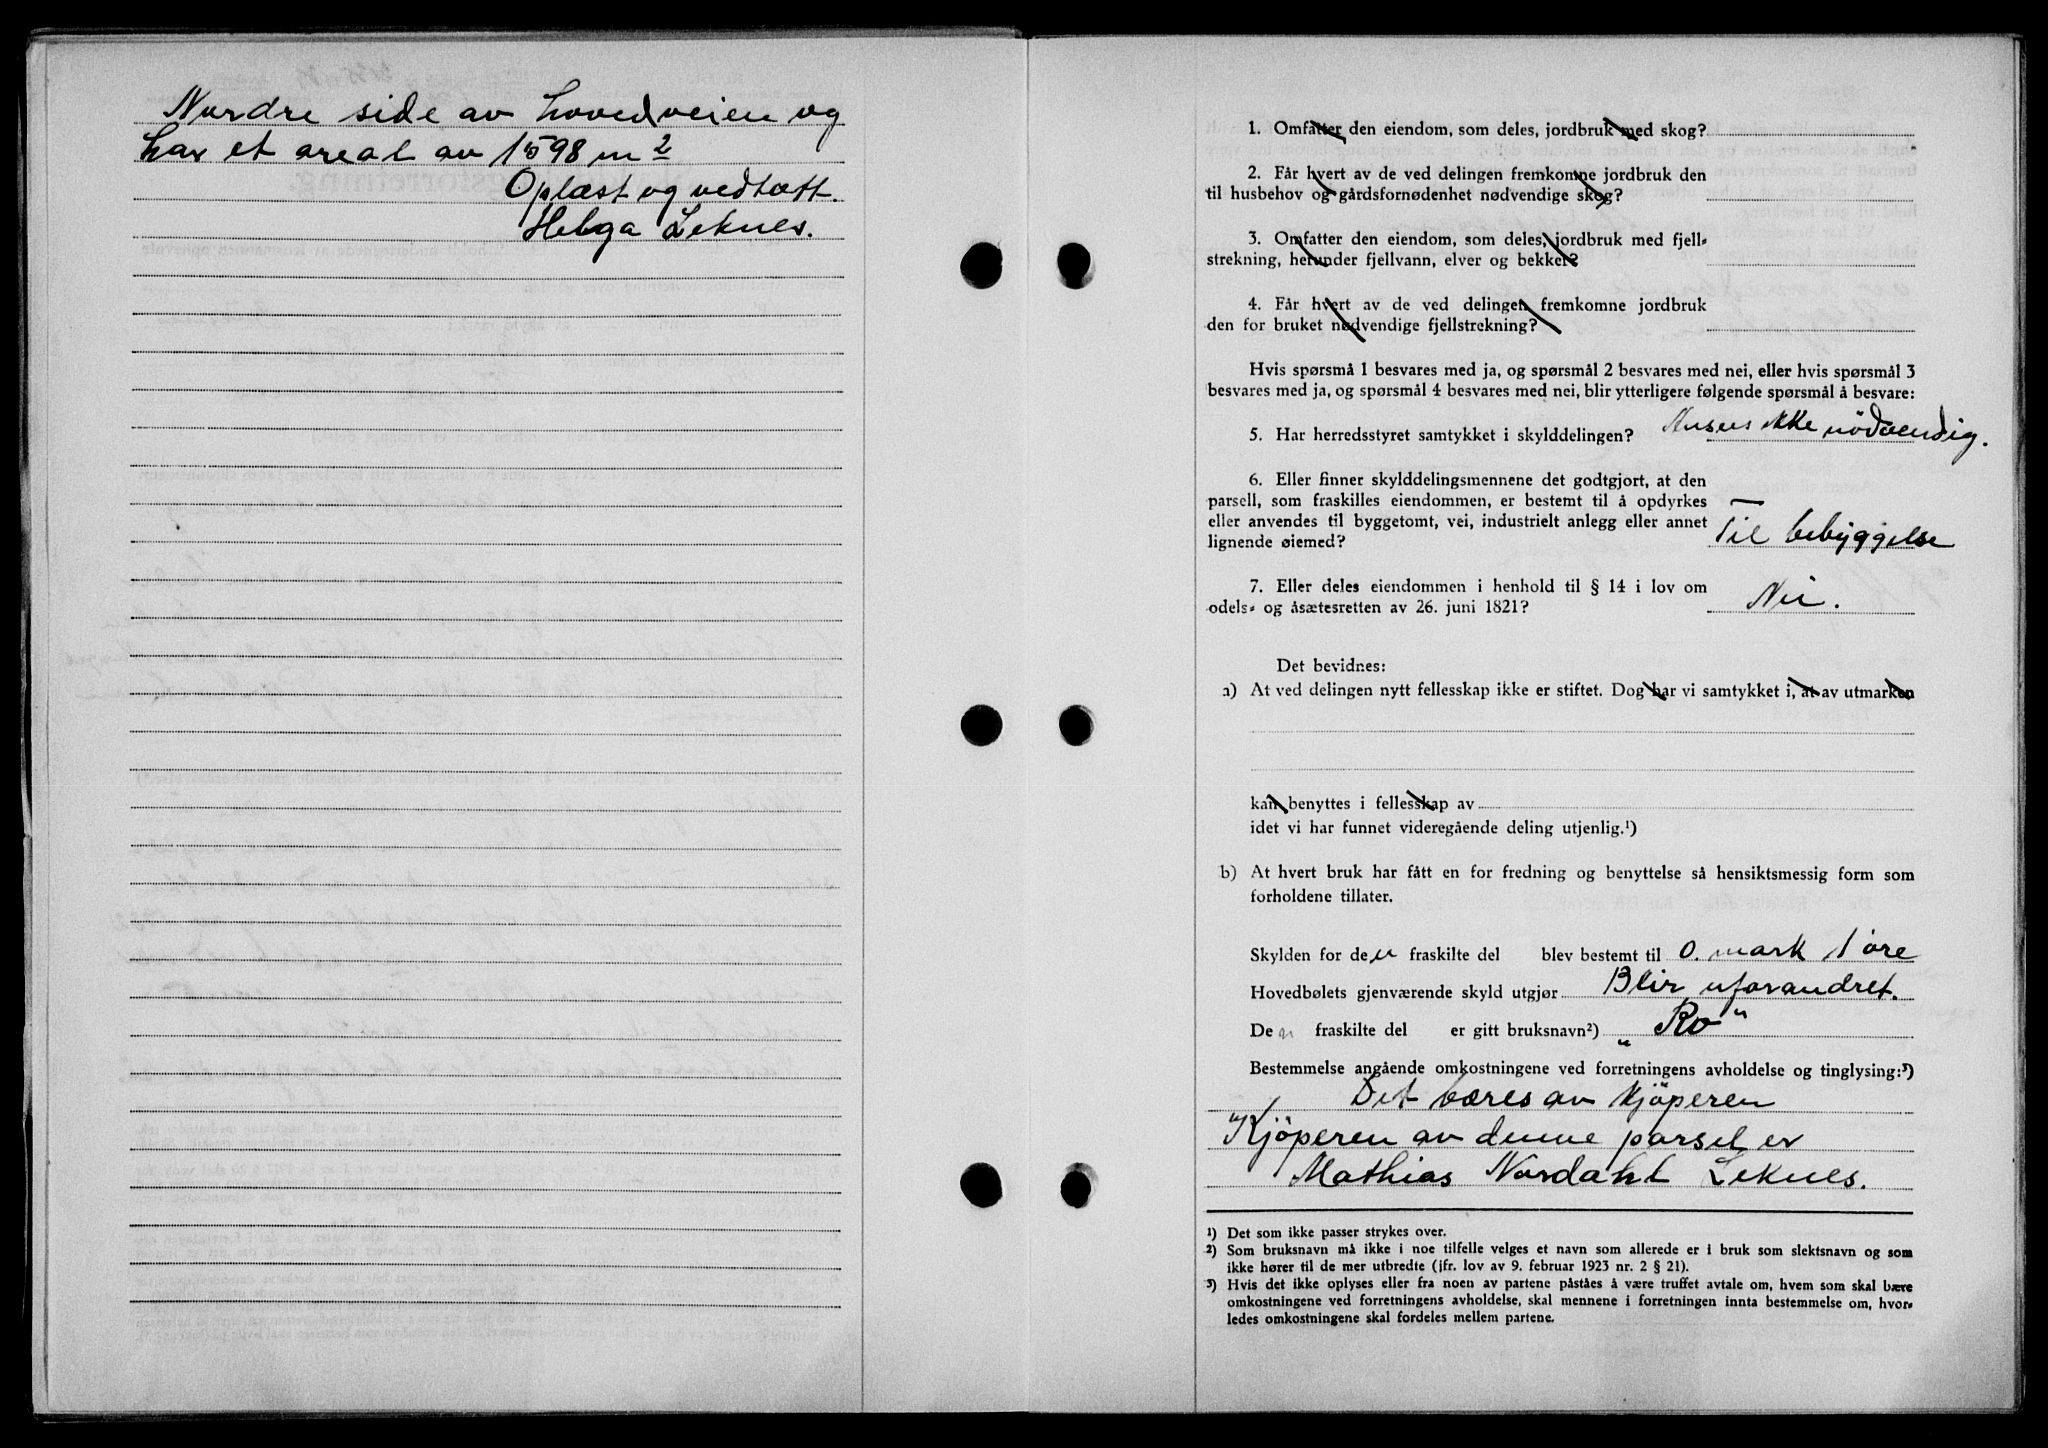 Nordre side av hovedveien og
har et areal av 1598 m2
Oplæst og vedtatt.
Helga Leknes.
1. Omfatter den eiendom, som deles, jordbruk med skog?
2. Får hvert av de ved delingen fremkomne jordbruk den
til husbehov og gårdsfornødenhet nødvendige skog?
3. Omfatter den eiendom, som deles, jordbruk med fjell-
strekning, herunder fjellvann, elver og bekker?
4. Får hvert av de ved delingen fremkomne jordbruk
den for bruket nødvendige fjellstrekning?
Hvis spørsmå 1 besvares med ja, og spørsmål 2 besvares med nei, eller hvis spørsmål 3
besvares med ja, og spørsmål 4 besvares med nei, blir ytterligere følgende spørsmål å besvare:
5. Har herredsstyret samtykket i skylddelingen? Anses ikke nödvendig.
6. Eller finner skylddelingsmennene det godtgjort, at den
parsell, som fraskilles eiendommen, er bestemt til å opdyrkes
eller anvendes til byggetomt, vei, industrielt anlegg eller annet
lignende øiemed? Til bebyggelse
7. Eller deles eiendommen i henhold til § 14 i lov om
odels- og åsætesretten av 26. juni 1821? Nei.
Det bevidnes:
a) At ved delingen nytt fellesskap ikke er stiftet. Dog har vi samtykket i, at av utmarken
kan benyttes i fellesskap av
idet vi har funnet videregående deling utjenlig.¹)
b) At hvert bruk har fått en for fredning og benyttelse så hensiktsmessig form som
forholdene tillater.
Skylden for den fraskilte del blev bestemt til 0. mark 1 öre
Hovedbølets gjenværende skyld utgjør Blir uforandret.
Den fraskilte del er gitt bruksnavn²) „Ro"
Bestemmelse angående omkostningene ved forretningens avholdelse og tinglysing:³)
Det bæres av kjöperen
Kjöperen av denne parsel er
Mathias Nordahl Leknes.
¹) Det som ikke passer strykes over.
²) Som bruksnavn må ikke i noe tilfelle velges et navn som allerede er i bruk som slektsnavn og som
ikke hører til de mer utbredte (jfr. lov av 9. februar 1923 nr. 2 § 21).
³) Hvis det ikke oplyses eller fra noen av partene påståes å være truffet avtale om, hvem som skal bære
omkostningene ved forretningens avholdelse, skal mennene i forretningen innta bestemmelse om, hvor-
ledes omkostningene skal fordeles mellem partene.